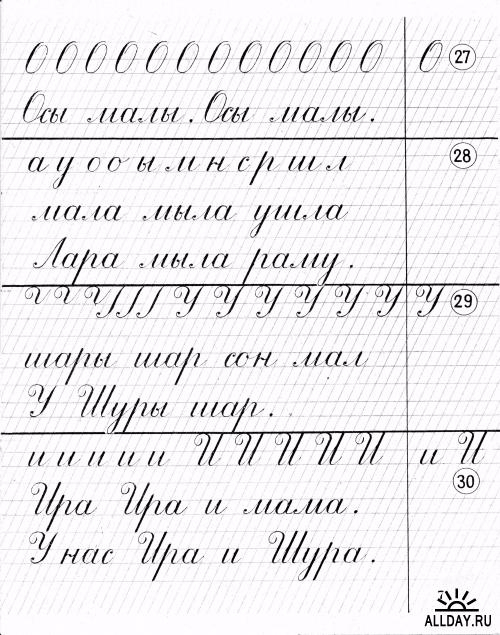 О О О О О О О О О О О О О 27
Осы малы. Осы малы.
а у о о ы м н с р ш л 28
мала мыла ушла
Лара мыла раму.
У У У У У У У 29
шары шар сон мал
У Шуры шар.
и и и и и И И И И И и И
30
Ира Ира и мама.
У нас Ира и Шура.
ALLDAY.RU